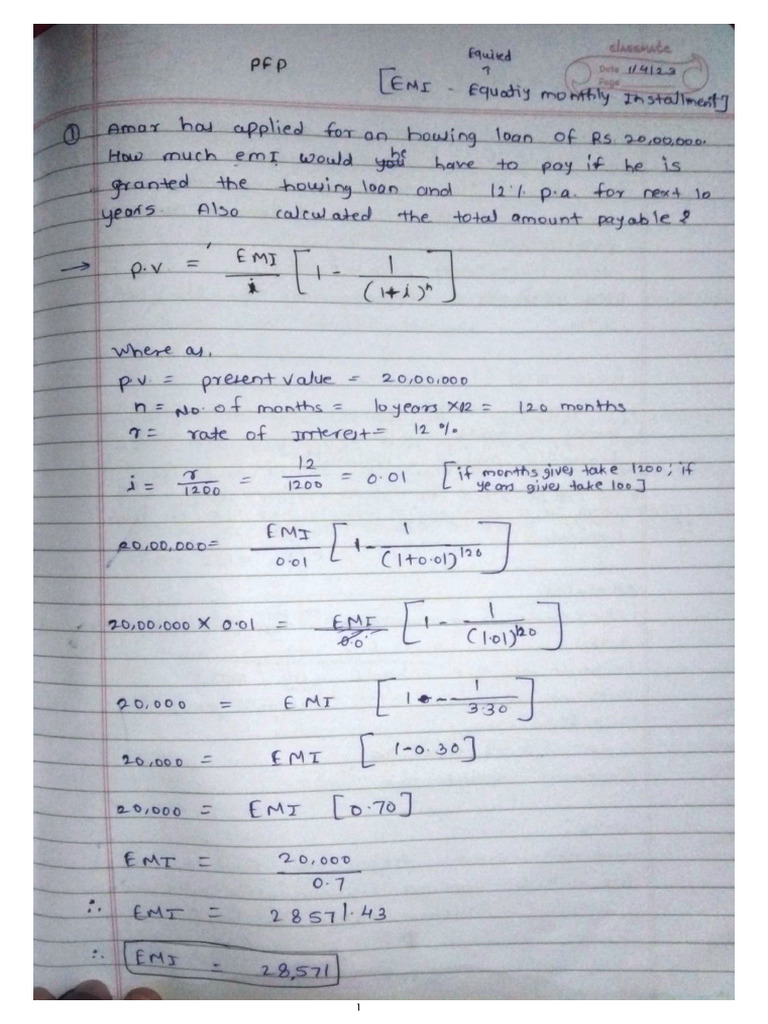 classmate
Date 1/4/23
Page
PFP
Equited
[EMI - Equatiy monthly Installment]
① Amar has applied for an howing loan of RS. 20,00,000.
How much emI would he have to pay if he is
granted the howing loan and 12% p.a. for next 10
years. Also calculated the total amount payable?
→ p.v = EMI/i [1 - 1/(1+i)^n]
where as,
p.v. = present value = 20,00,000
n = No. of months = 10 years x12 = 120 months
r = rate of interest = 12 %
i = r/1200 = 12/1200 = 0.01 [if months gives take 1200; if
years gives take 100]
20,00,000 = EMI/0.01 [1 - 1/(1+0.01)^120]
20,00,000 X 0.01 = EMI/0.0 [1 - 1/(1.01)^120]
20,000 = EMI [1 - 1/3.30]
20,000 = EMI [1-0.30]
20,000 = EMI [0.70]
EMI = 20,000/0.7
∴ EMI = 28571.43
∴ EMI = 28,571
1